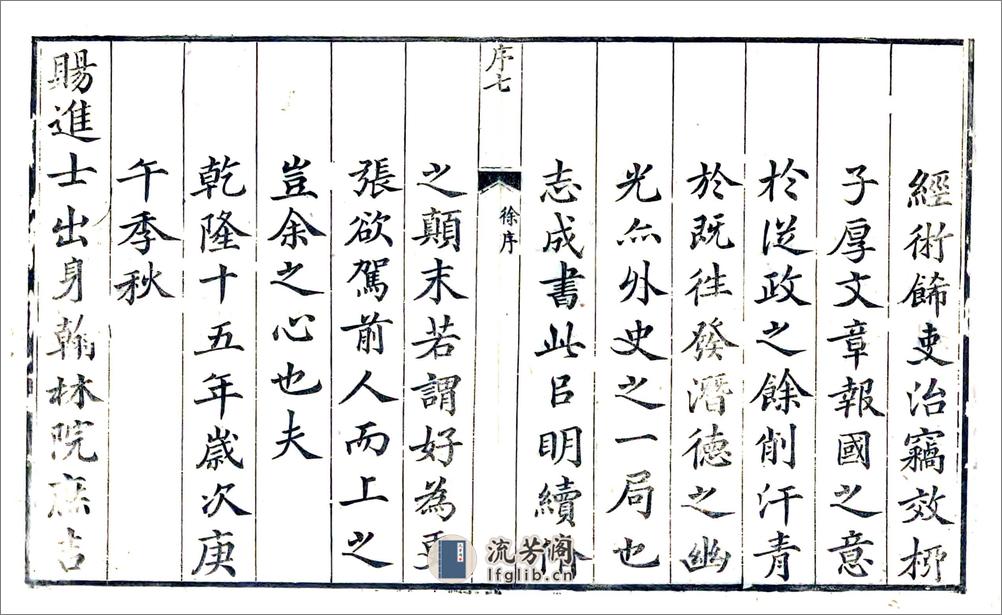 經術餙吏治竊效栁
子厚文章報國之意
於從政之餘削汗青
於既往發潛德之幽
光亦外史之一局也
志成書此㠯明續
序七
徐序
之顛末若謂好為更
張欲駕前人而上之
豈余之心也夫
乾隆十五年歲次庚
午季秋
賜進士出身翰林院庶吉
流芳阁
lfglib.cn